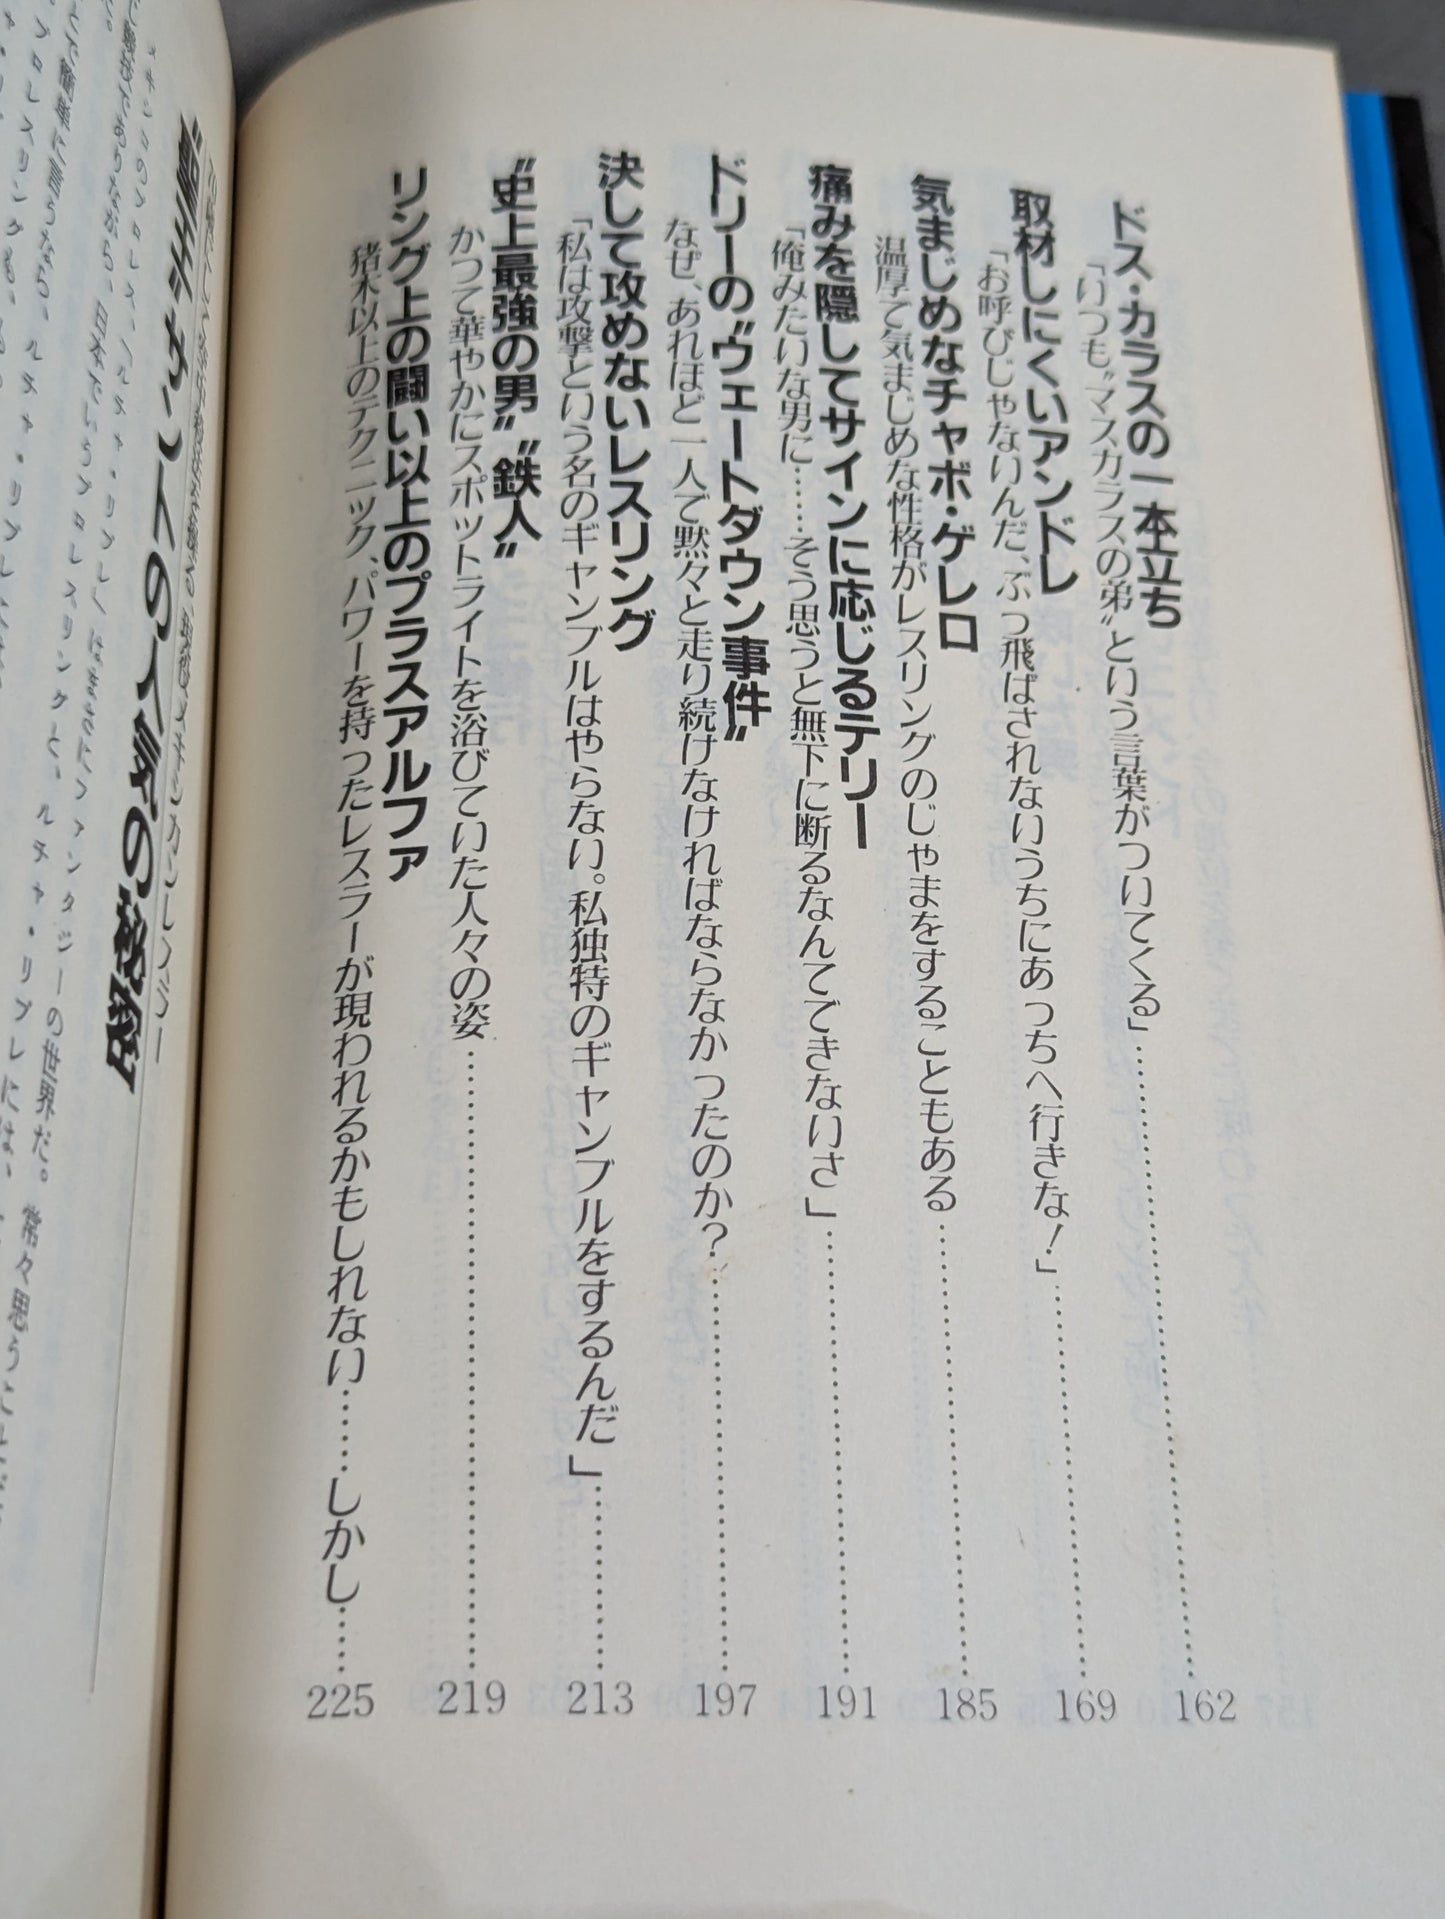 ドス・カラスの一本立ち
「いつも〝マスカラスの弟〟という言葉がついてくる」…………162
取材しにくいアンドレ
「お呼びじゃないんだ、ぶっ飛ばされないうちにあっちへ行きな！」…………169
気まじめなチャボ・ゲレロ
温厚で気まじめな性格がレスリングのじゃまをすることもある…………185
痛みを隠してサインに応じるテリー
「俺みたいな男に……そう思うと無下に断るなんてできないさ」…………191
ドリーの〝ウェートダウン事件〟
なぜ、あれほど一人で黙々と走り続けなければならなかったのか？…………197
決して攻めないレスリング
「私は攻撃という名のギャンブルはやらない。私独特のギャンブルをするんだ」…………213
〝史上最強の男〟〝鉄人〟
かつて華やかにスポットライトを浴びていた人々の姿…………219
リング上の闘い以上のプラスアルファ
猪木以上のテクニック、パワーを持ったレスラーが現われるかもしれない……しかし……225
の人気の秘密